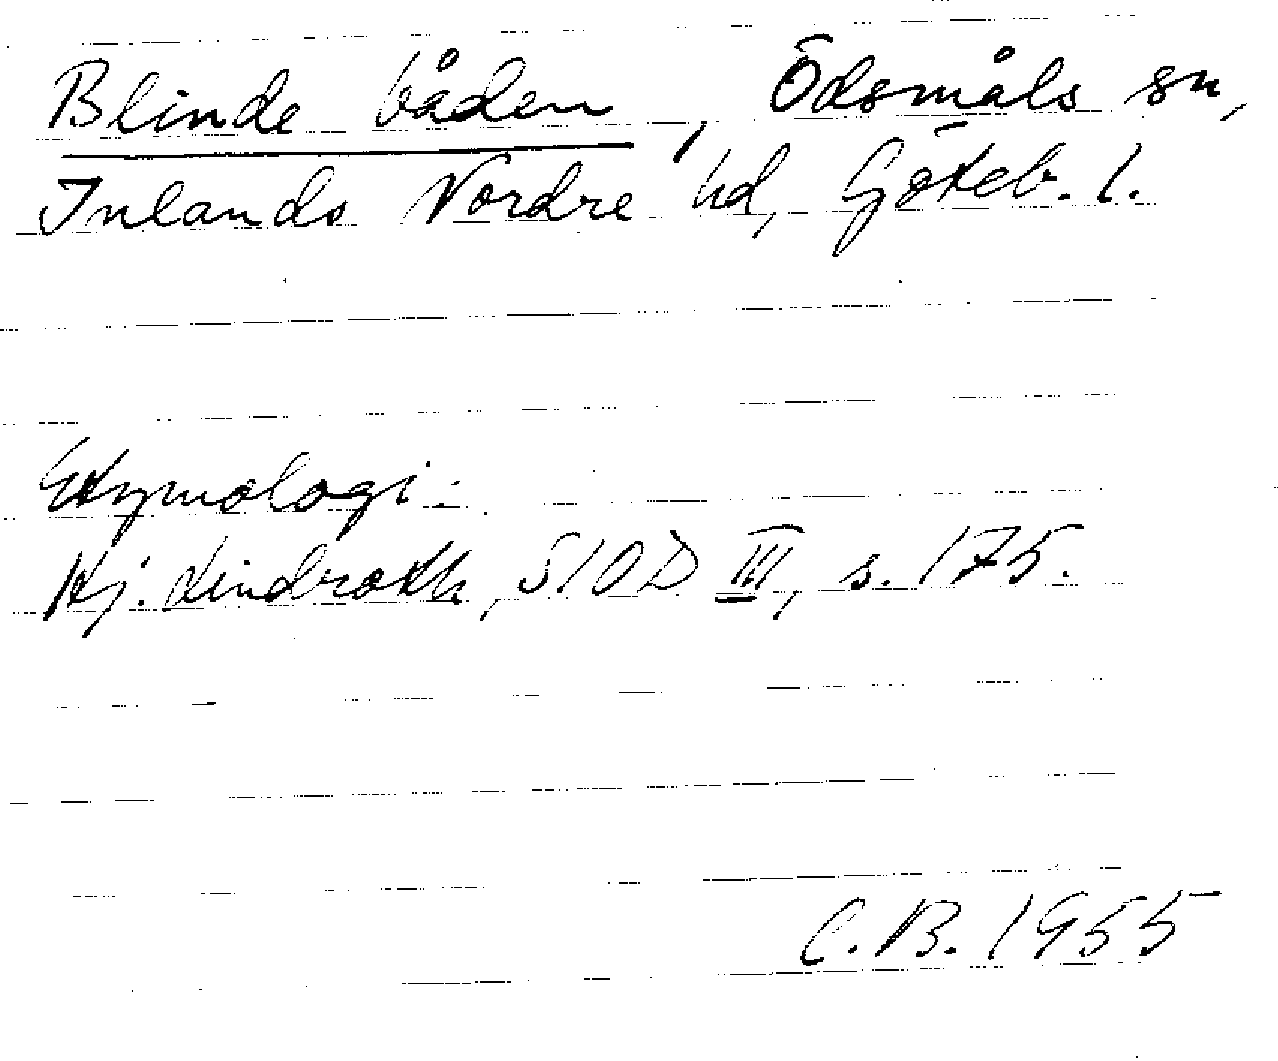 Blinde båden, Ödsmåls sn,
Inlands Nordre hd, Göteb. l.
Etymologi:
Hj. Lindroth, SIOD III, s. 175.
C.B. 1955